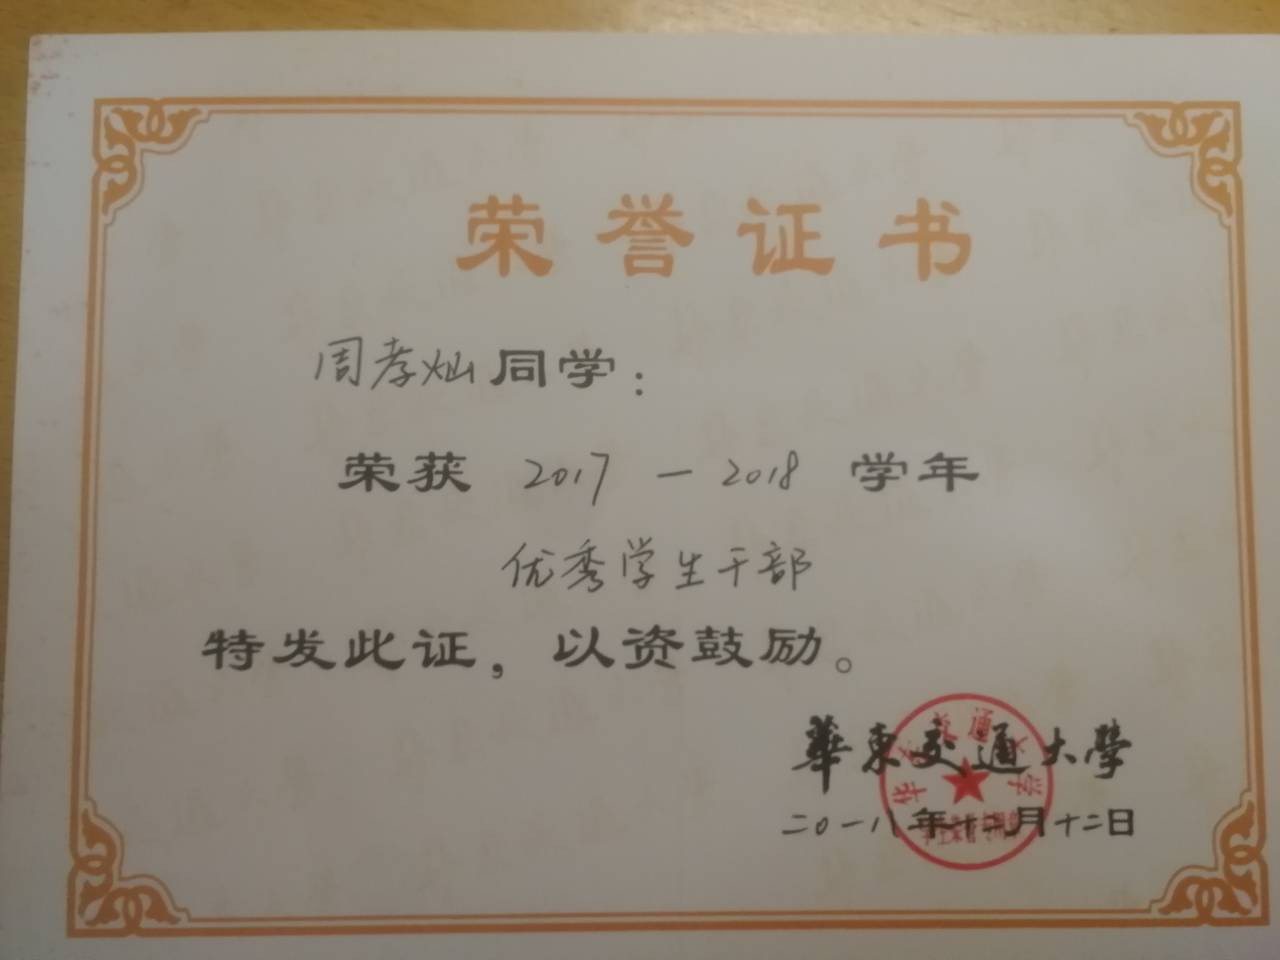 荣誉证书
周孝灿同学：
荣获 2017 - 2018 学年
优秀学生干部
特发此证，以资鼓励。
華東交通大學
华东交通大学
二〇一八年十二月十二日